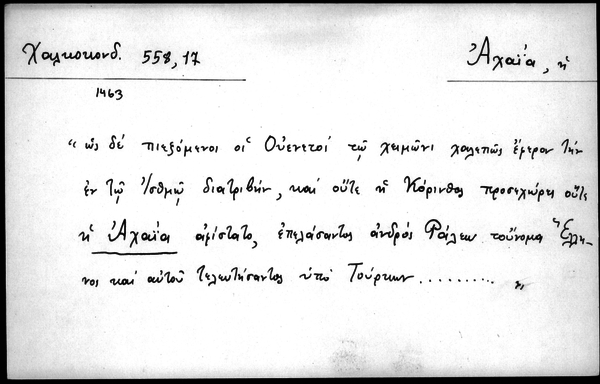 Χαλκοκονδ. 558, 17
Ἀχαΐα, ἡ
1463
“ὡς δέ πιεζόμενοι οἱ Οὐενετοί τῷ χειμῶνι χαλεπῶς ἔφερον τήν
ἐν τῷ Ἰσθμῷ διατριβήν, καί οὔτε ἡ Κόρινθος προσεχώρει οὔτε
ἡ Ἀχαΐα ἀφίστατο, ἐπελάσαντος ἀνδρός Ῥάλεω τοὔνομα Ἕλλη-
νος καί αὐτοῦ τελευτήσαντος ὑπό Τούρκων .......... „